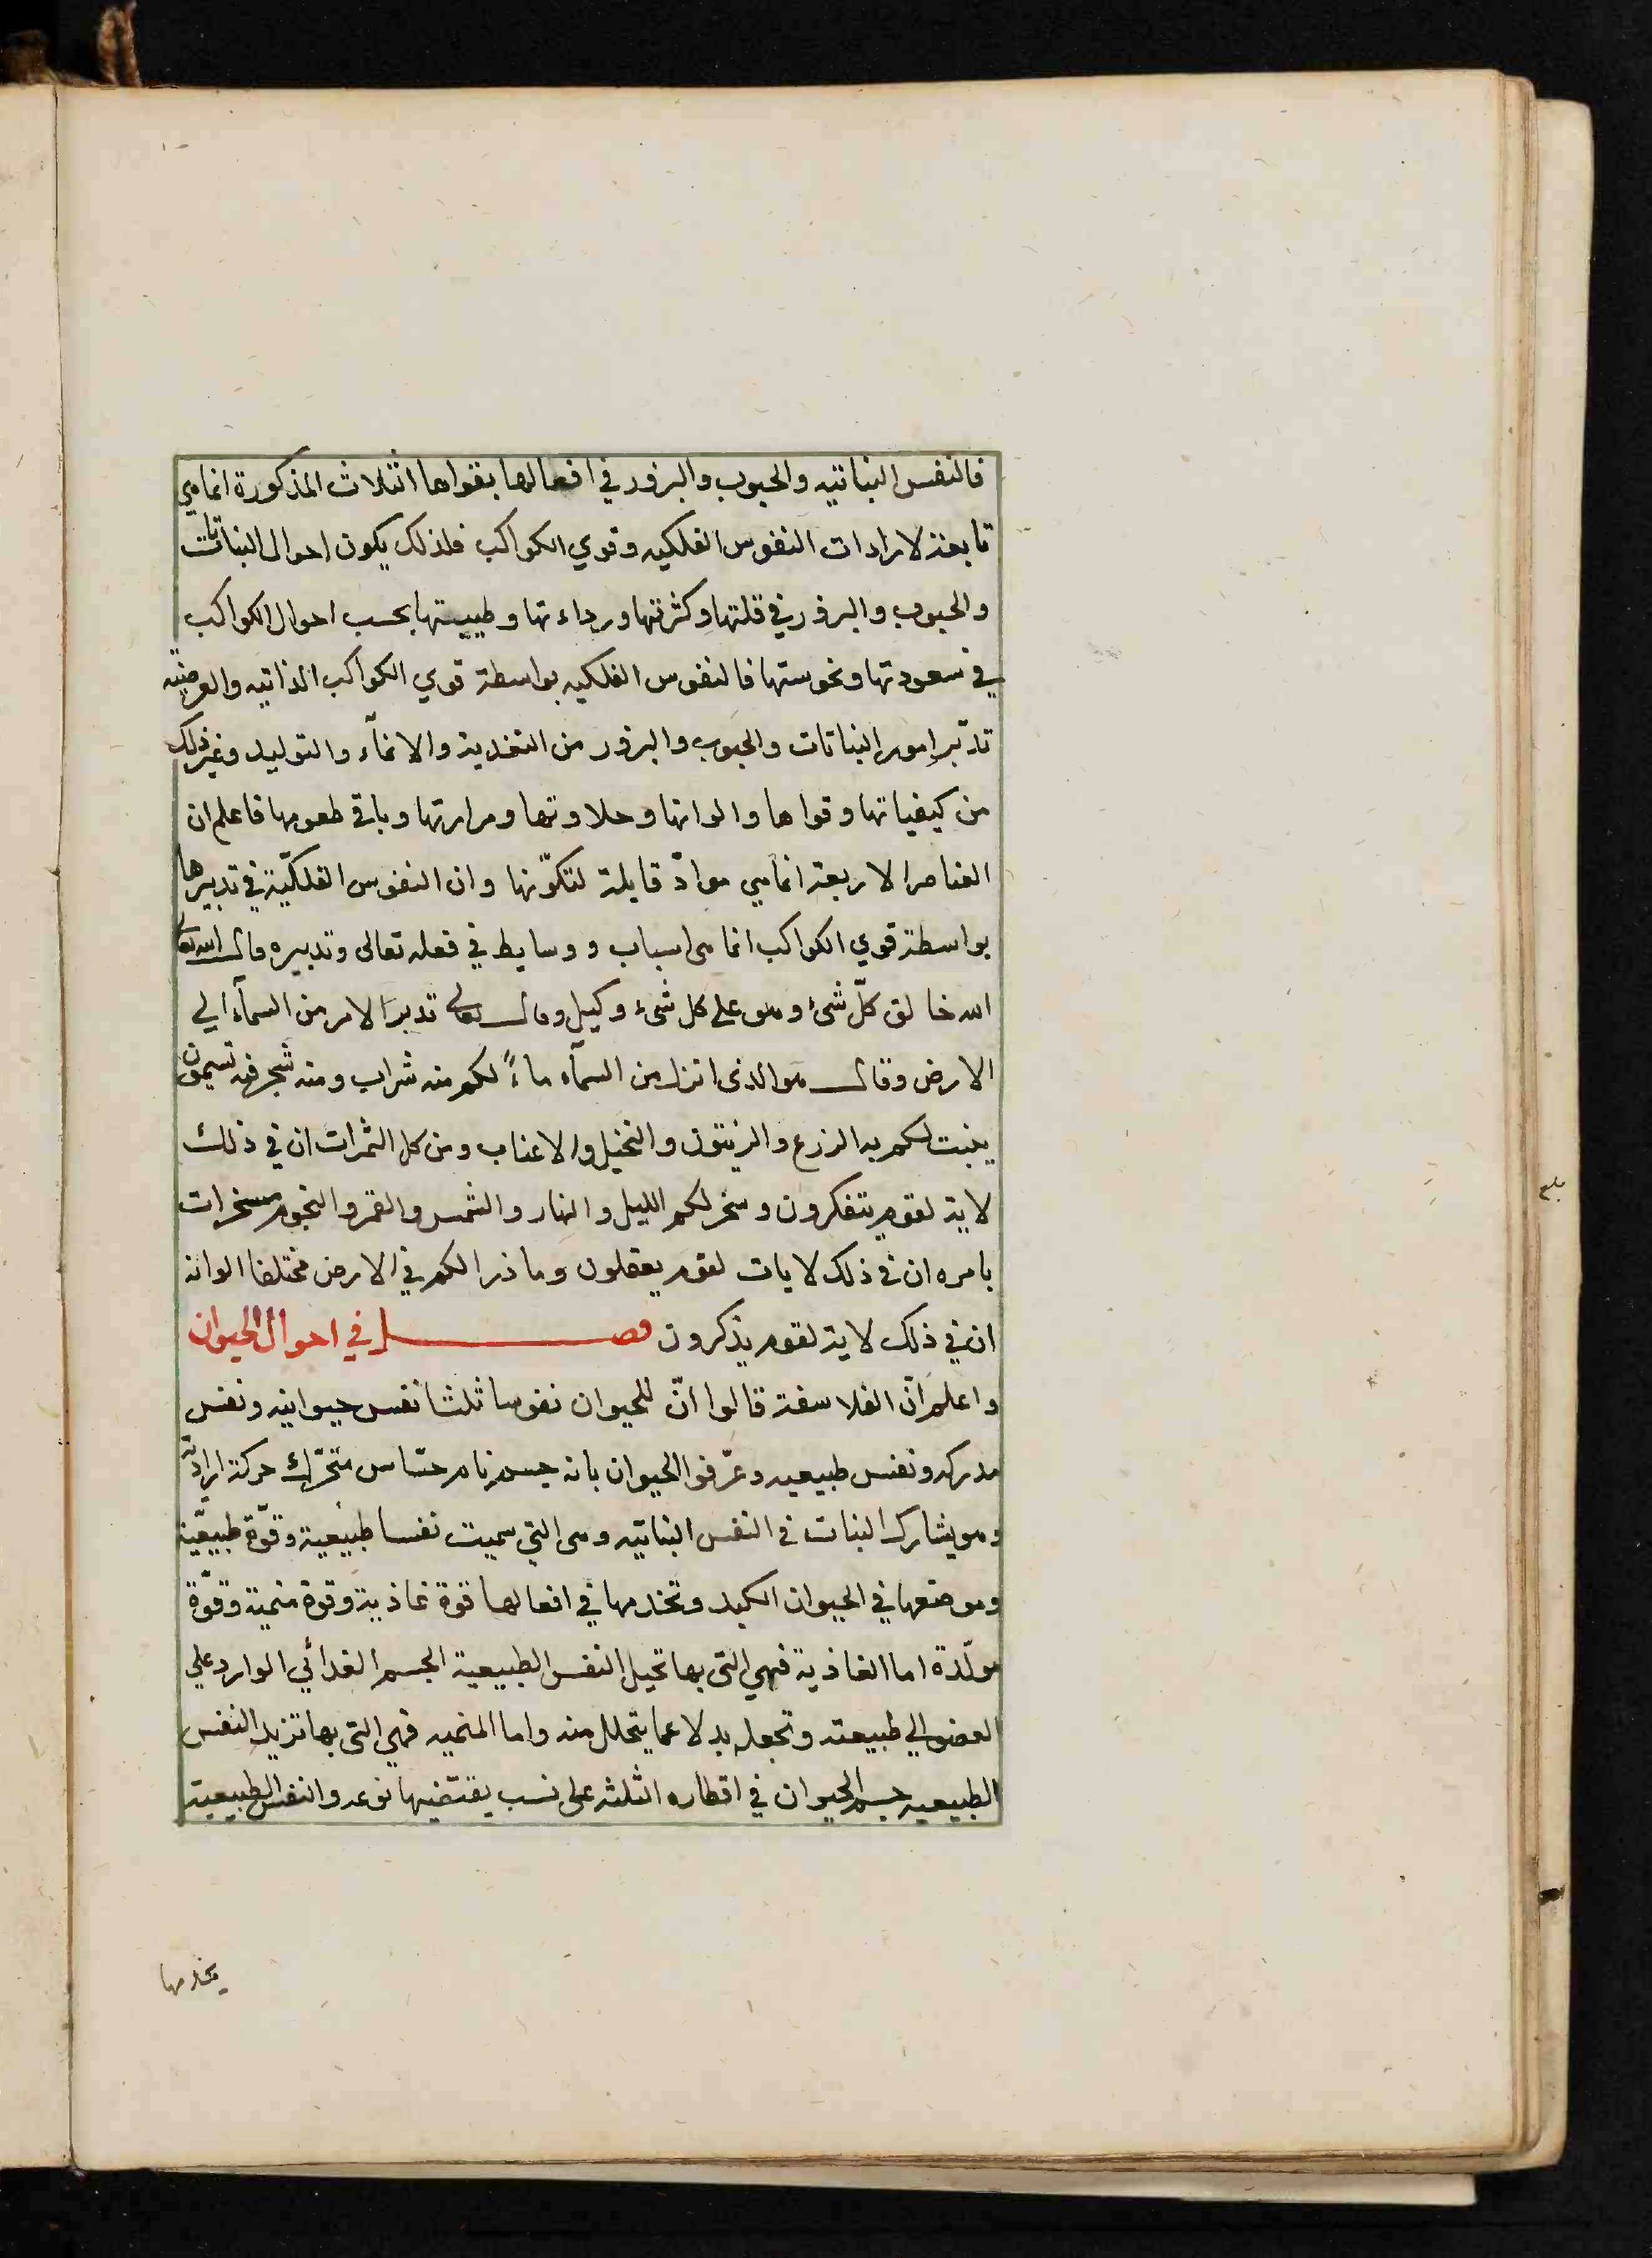 فالنفس النباتيه والحبوب والبزور في افعالها بقواها الثلاث المذكورة انما هي
تابعة لارادات النفوس الفلكيه وقوي الكواكب فلذلك يكون احوال النباتات
والحبوب والبزور في قلتها وكثرتها ورداءتها وطيبيتها بحسب احوال الكواكب
في سعودتها ونحوستها فالنفوس الفلكيه بواسطة قوي الكواكب الذاتيه والعرضيّه
تدبّر امور النباتات والحبوب والبزور من التغدية والانمآء والتوليد وغير ذلك
من كيفياتها وقواها والوانها وحلاوتها ومرارتها وباقي طعومها فاعلم ان
العناصر الاربعة انما هي موادّ قابلة لتكوّنها وان النفوس الفلكيّة في تدبيرها
بواسطة قوي الكواكب انما هى اسباب ووسايط في فعله تعالى وتدبيره قال الله تعالى
الله خالق كلّ شىء وهو على كل شىء وكيل وقال تعالى تدبر الامر من السمآء الي
الارض وقال هو الذى انزل من السمآء ماءً لكم منه شراب ومنه شجر فيه تسيمون
ينبت لكم به الزرع والزيتون والنخيل والاعناب ومن كل الثمرات ان في ذلك
لاية لقوم يتفكرون وسخر لكم الليل والنهار والشمس والقمر والنجوم مسخرات
بامره ان في ذلك لايات لقوم يعقلون وما ذرا لكم في الارض مختلفا الوانه
ان في ذلك لاية لقوم يذكرون فصل في احوال الحيوان
واعلم انّ الفلاسفة قالوا انّ للحيوان نفوسا ثلثا نفس حيوانيه ونفس
مدركه ونفس طبيعيه وعرّفوا الحيوان بانه جسم نام حسّاس متحرّك حركة اراديّة
وهو يشارك النبات في النفس النباتيه وهى التي سميت نفسا طبيعية وقوّة طبيعيّة
وموضعها في الحيوان الكبد وتخدمها في افعالها قوة غاذية وقوة منمية وقوّة
مولّدة اما الغاذية فهي التى بها تحيل النفس الطبيعية الجسم الغدائي الوارد علي
العضو الي طبيعته وتجعله بدلا عما يتحلل منه واما المنميه فهي التى بها تزيد النفس
الطبيعيه جسم الحيوان في اقطاره الثلثه على نسب يقتضيها نوعه والنفس الطبيعية
يخدمها